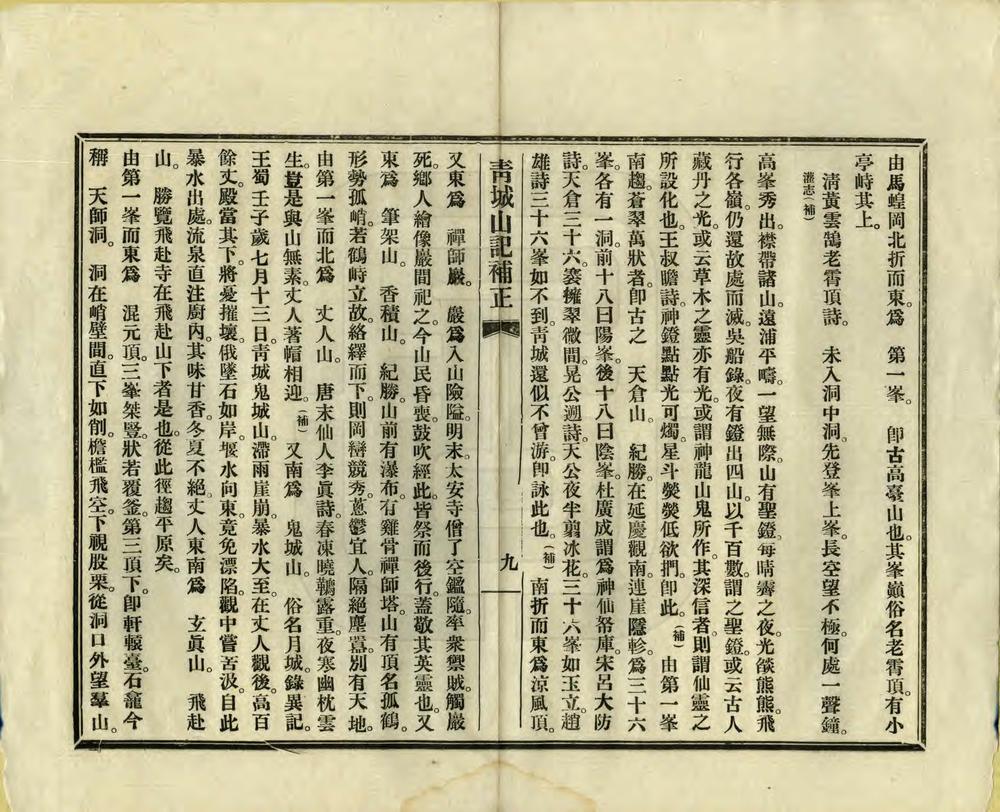 由馬蝗岡北折而東。爲　第一峯。　卽古高臺山也。其峯巔俗名老霄頂。有小
亭峙其上。
　淸黃雲鵠老霄頂詩。　未入洞中洞。先登峯上峯。長空望不極。何處一聲鐘。
　灌志（補）
高峯秀出。襟帶諸山。遠浦平疇。一望無際。山有聖鐙。每晴霽之夜。光燄熊熊。飛
行各嶺。仍還故處而滅。吳船錄。夜有鐙出四山。以千百數。謂之聖鐙。或云古人
藏丹之光。或云草木之靈亦有光。或謂神龍山鬼所作。其深信者。則謂仙靈之
所設化也。王叔瞻詩。神鐙點點光可燭。星斗熒熒低欲捫。卽此。（補）　由第一峯
南趨。蒼翠萬狀者。卽古之　天倉山。　紀勝。在延慶觀南。連崖隱軫。爲三十六
峯。各有一洞。前十八曰陽峯。後十八曰陰峯。杜廣成謂爲神仙帑庫。宋呂大防
詩。天倉三十六。褰擁翠微間。晁公遡詩。天公夜半翦冰花。三十六峯如玉立。趙
雄詩。三十六峯如不到。靑城還似不曾游。卽詠此也。（補）　南折而東。爲涼風頂。
靑城山記補正　九
又東爲　禪師巖。　巖爲入山險隘。明末太安寺僧了空鑑隨。率衆禦賊。觸巖
死。鄉人繪像巖間祀之。今山民昏喪。鼓吹經此。皆祭而後行。蓋敬其英靈也。又
東爲　筆架山。　香積山。　紀勝。山前有瀑布。有雞骨禪師塔。山有頂名孤鶴。
形勢孤峭。若鶴峙立故。絡繹而下。則岡巒競秀。蔥鬱宜人。隔絕塵囂。別有天地。
由第一峯而北爲　丈人山。　唐末仙人李眞詩。春凍曉鞴露重。夜寒幽枕雲
生。豈是與山無素。丈人著帽相迎。（補）　又南爲　鬼城山。　俗名月城。錄異記。
王蜀壬子歲七月十三日。靑城鬼城山。滯雨崖崩。暴水大至。在丈人觀後。高百
餘丈。殿當其下。將憂摧壞。俄墜石如岸。堰水向東。竟免漂陷。觀中嘗苦汲。自此
暴水出處。流泉直注廚內。其味甘香。冬夏不絕。丈人東南爲　玄眞山。　飛赴
山。　勝覽。飛赴寺在飛赴山下者是也。從此徑趨平原矣。
由第一峯而東爲　混元頂。三峯桀豎。狀若覆釜。第三頂下。卽軒轅臺。石龕今
稱　天師洞。　洞在峭壁間。直下如削。檐檻飛空。下視股栗。從洞口外望羣山。